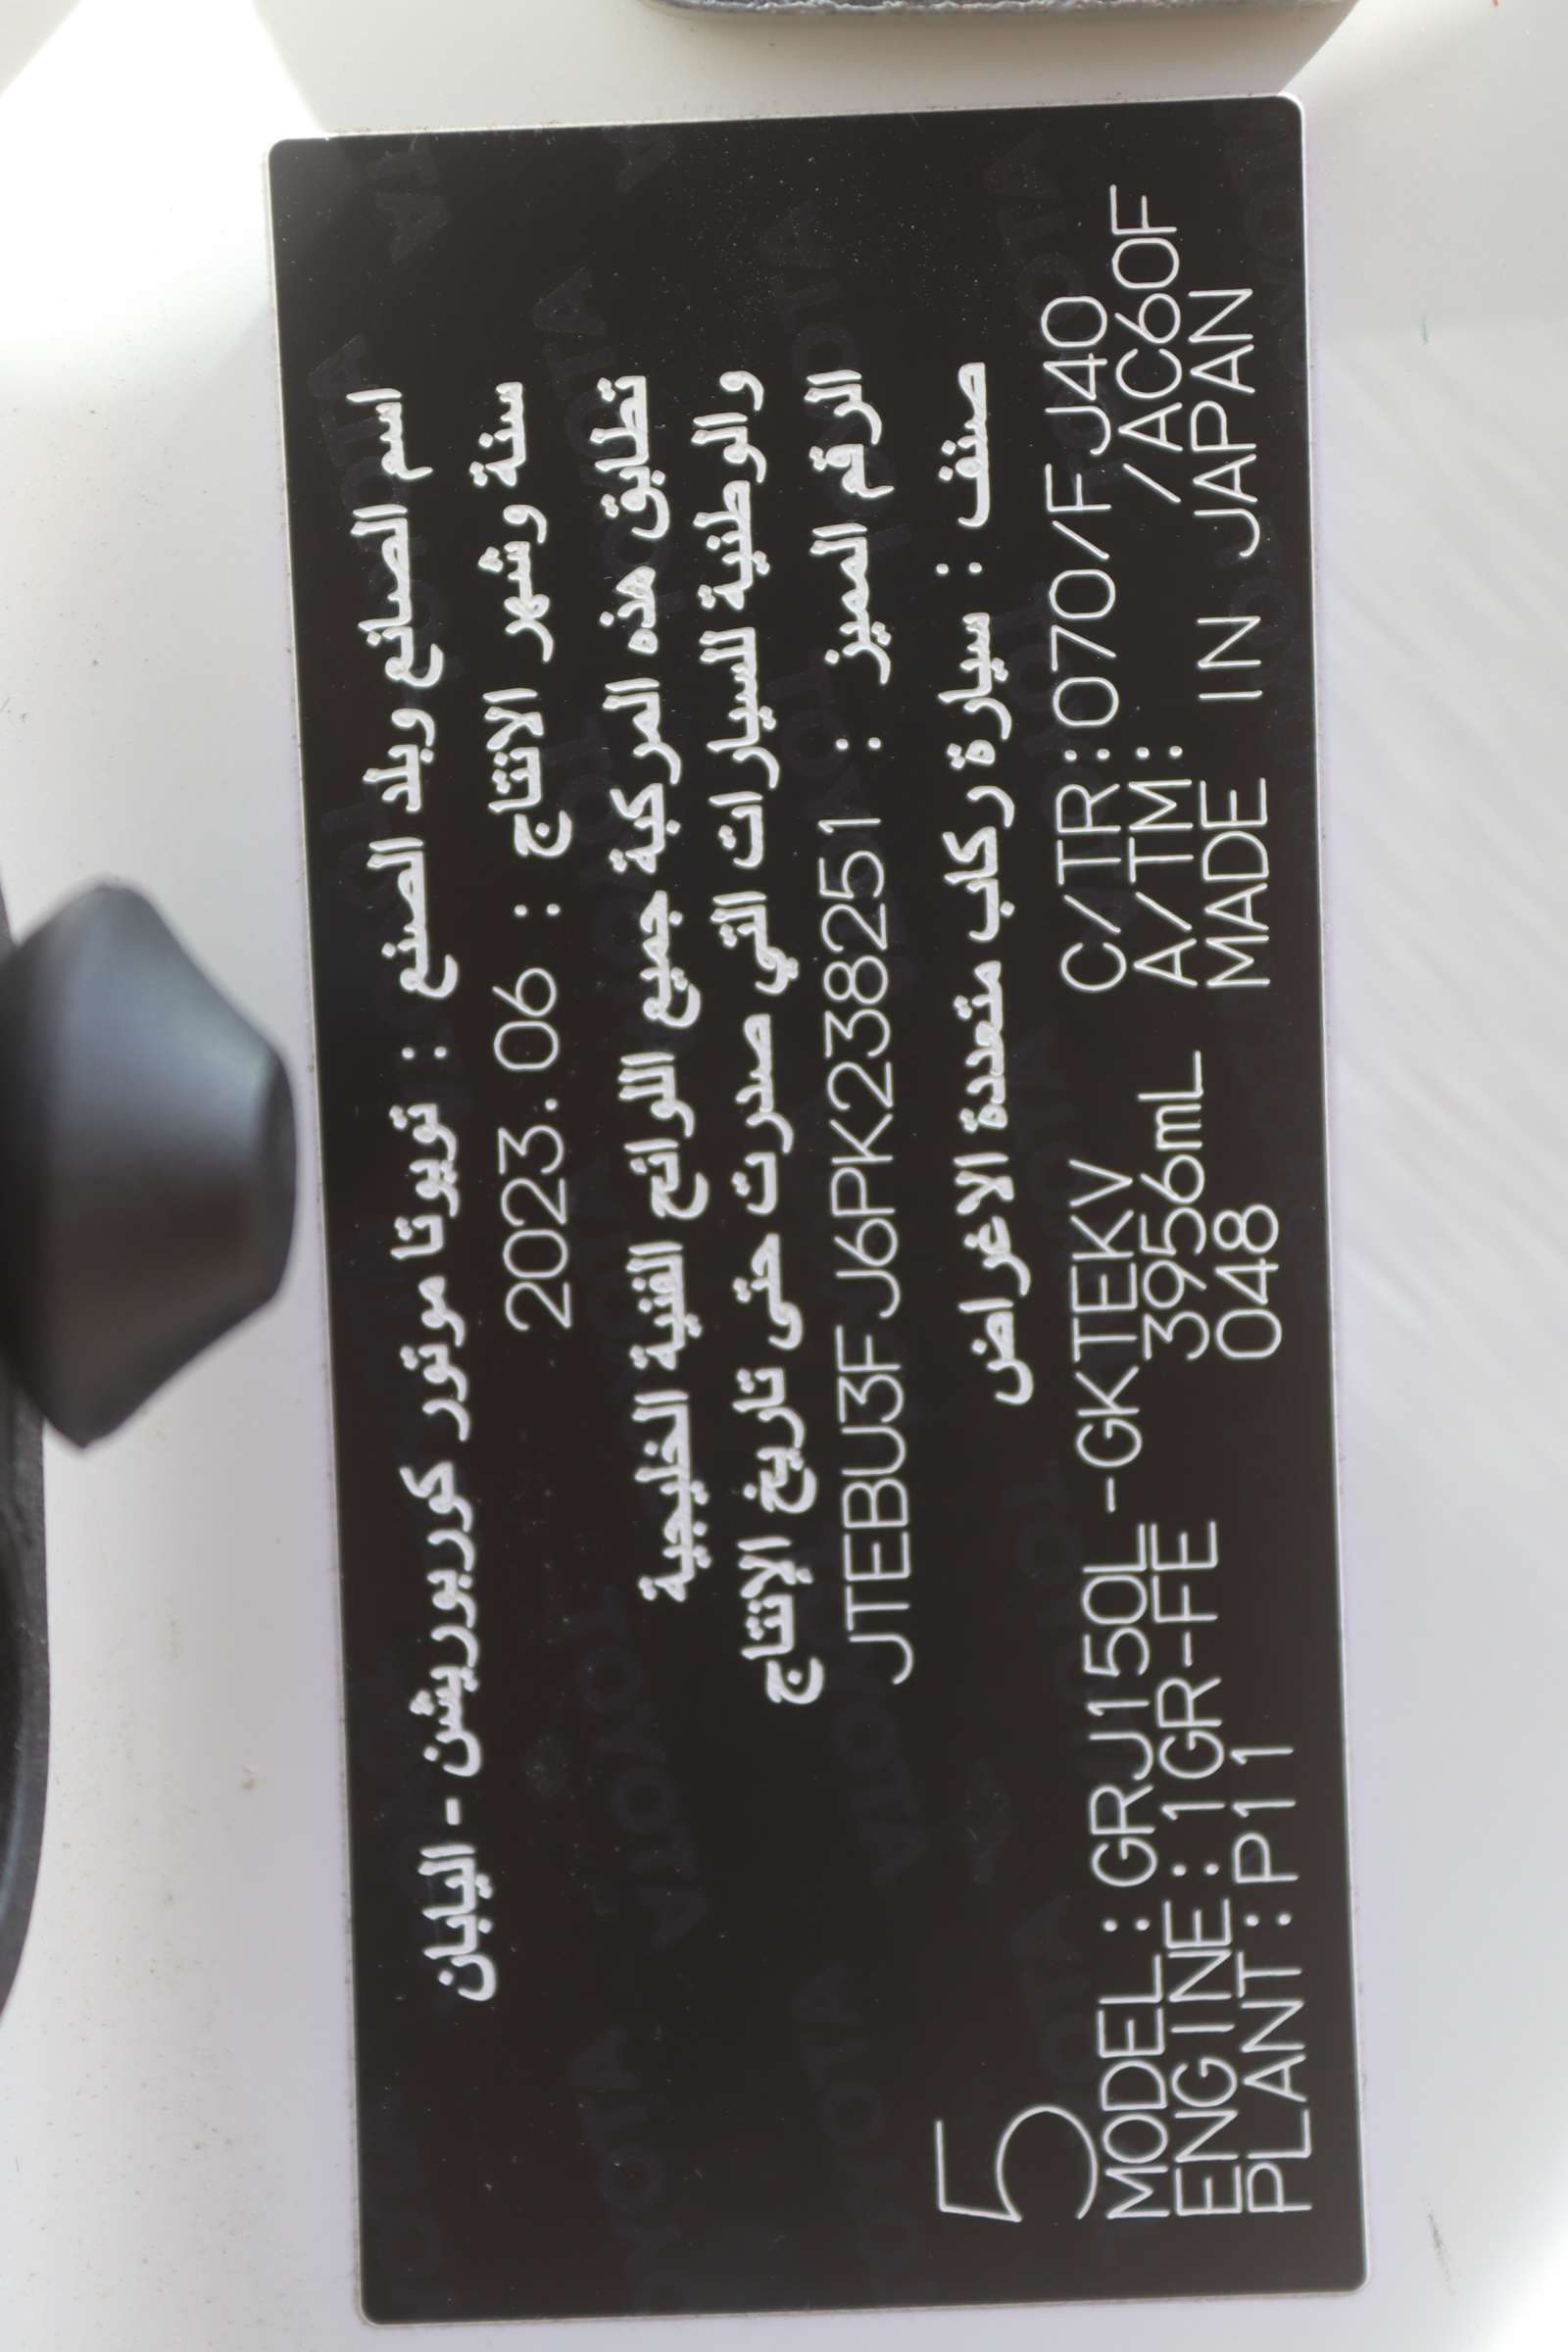 اسم الصانع وبلد الصنع : تويوتا موتور كوربوريشن - اليابان
سنة وشهر الانتاج : 2023.06
تطابق هذه المركبة جميع اللوائح الفنية الخليجية
والوطنية للسيارات التي صدرت حتى تاريخ الإنتاج
الرقم المميز : JTEBU3FJJ6PK238251
صنف : سيارة ركاب متعددة الاغراض
5
MODEL:GRJ150L-GKTEKV C/TR:070/FJ40
ENGINE:1GR-FE 3956mL A/TM: /AC60F
PLANT:P11 048 MADE IN JAPAN